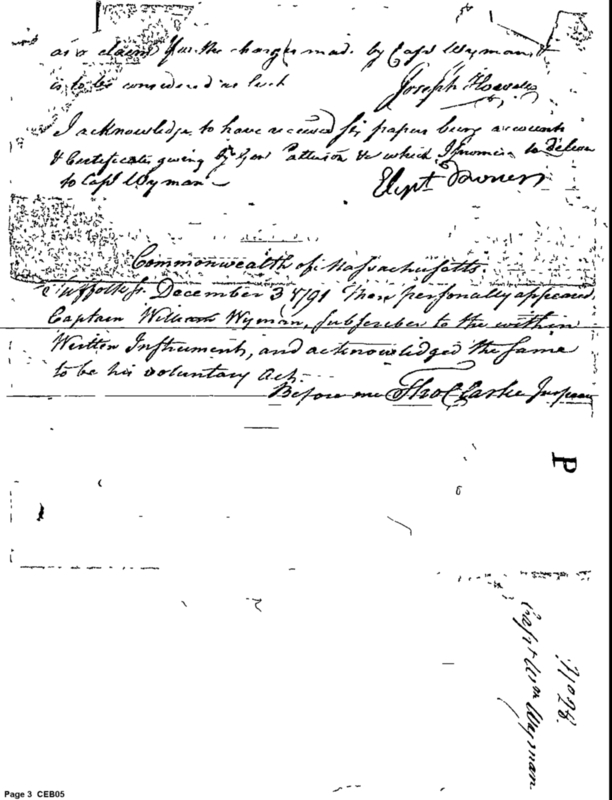 as a claim for the charges made by Capt Wyman &
is to be considered as such
Joseph Howell
I acknowledge to have received six papers being accounts
& Certificates giving by Gen Patterson & which I promise to deliver
to Capt Wyman
Elipt Downer
Commonwealth of Massachusetts.
Suffolk ss. December 3 1791 Then personally appeared
Captain William Wyman, subscriber to the within
Written Instrument, and acknowledged the same
to be his voluntary Act.
Before me Tho Clarke Jus peace
P
No 28.
Capt Wm Wyman
Page 3 CEB05